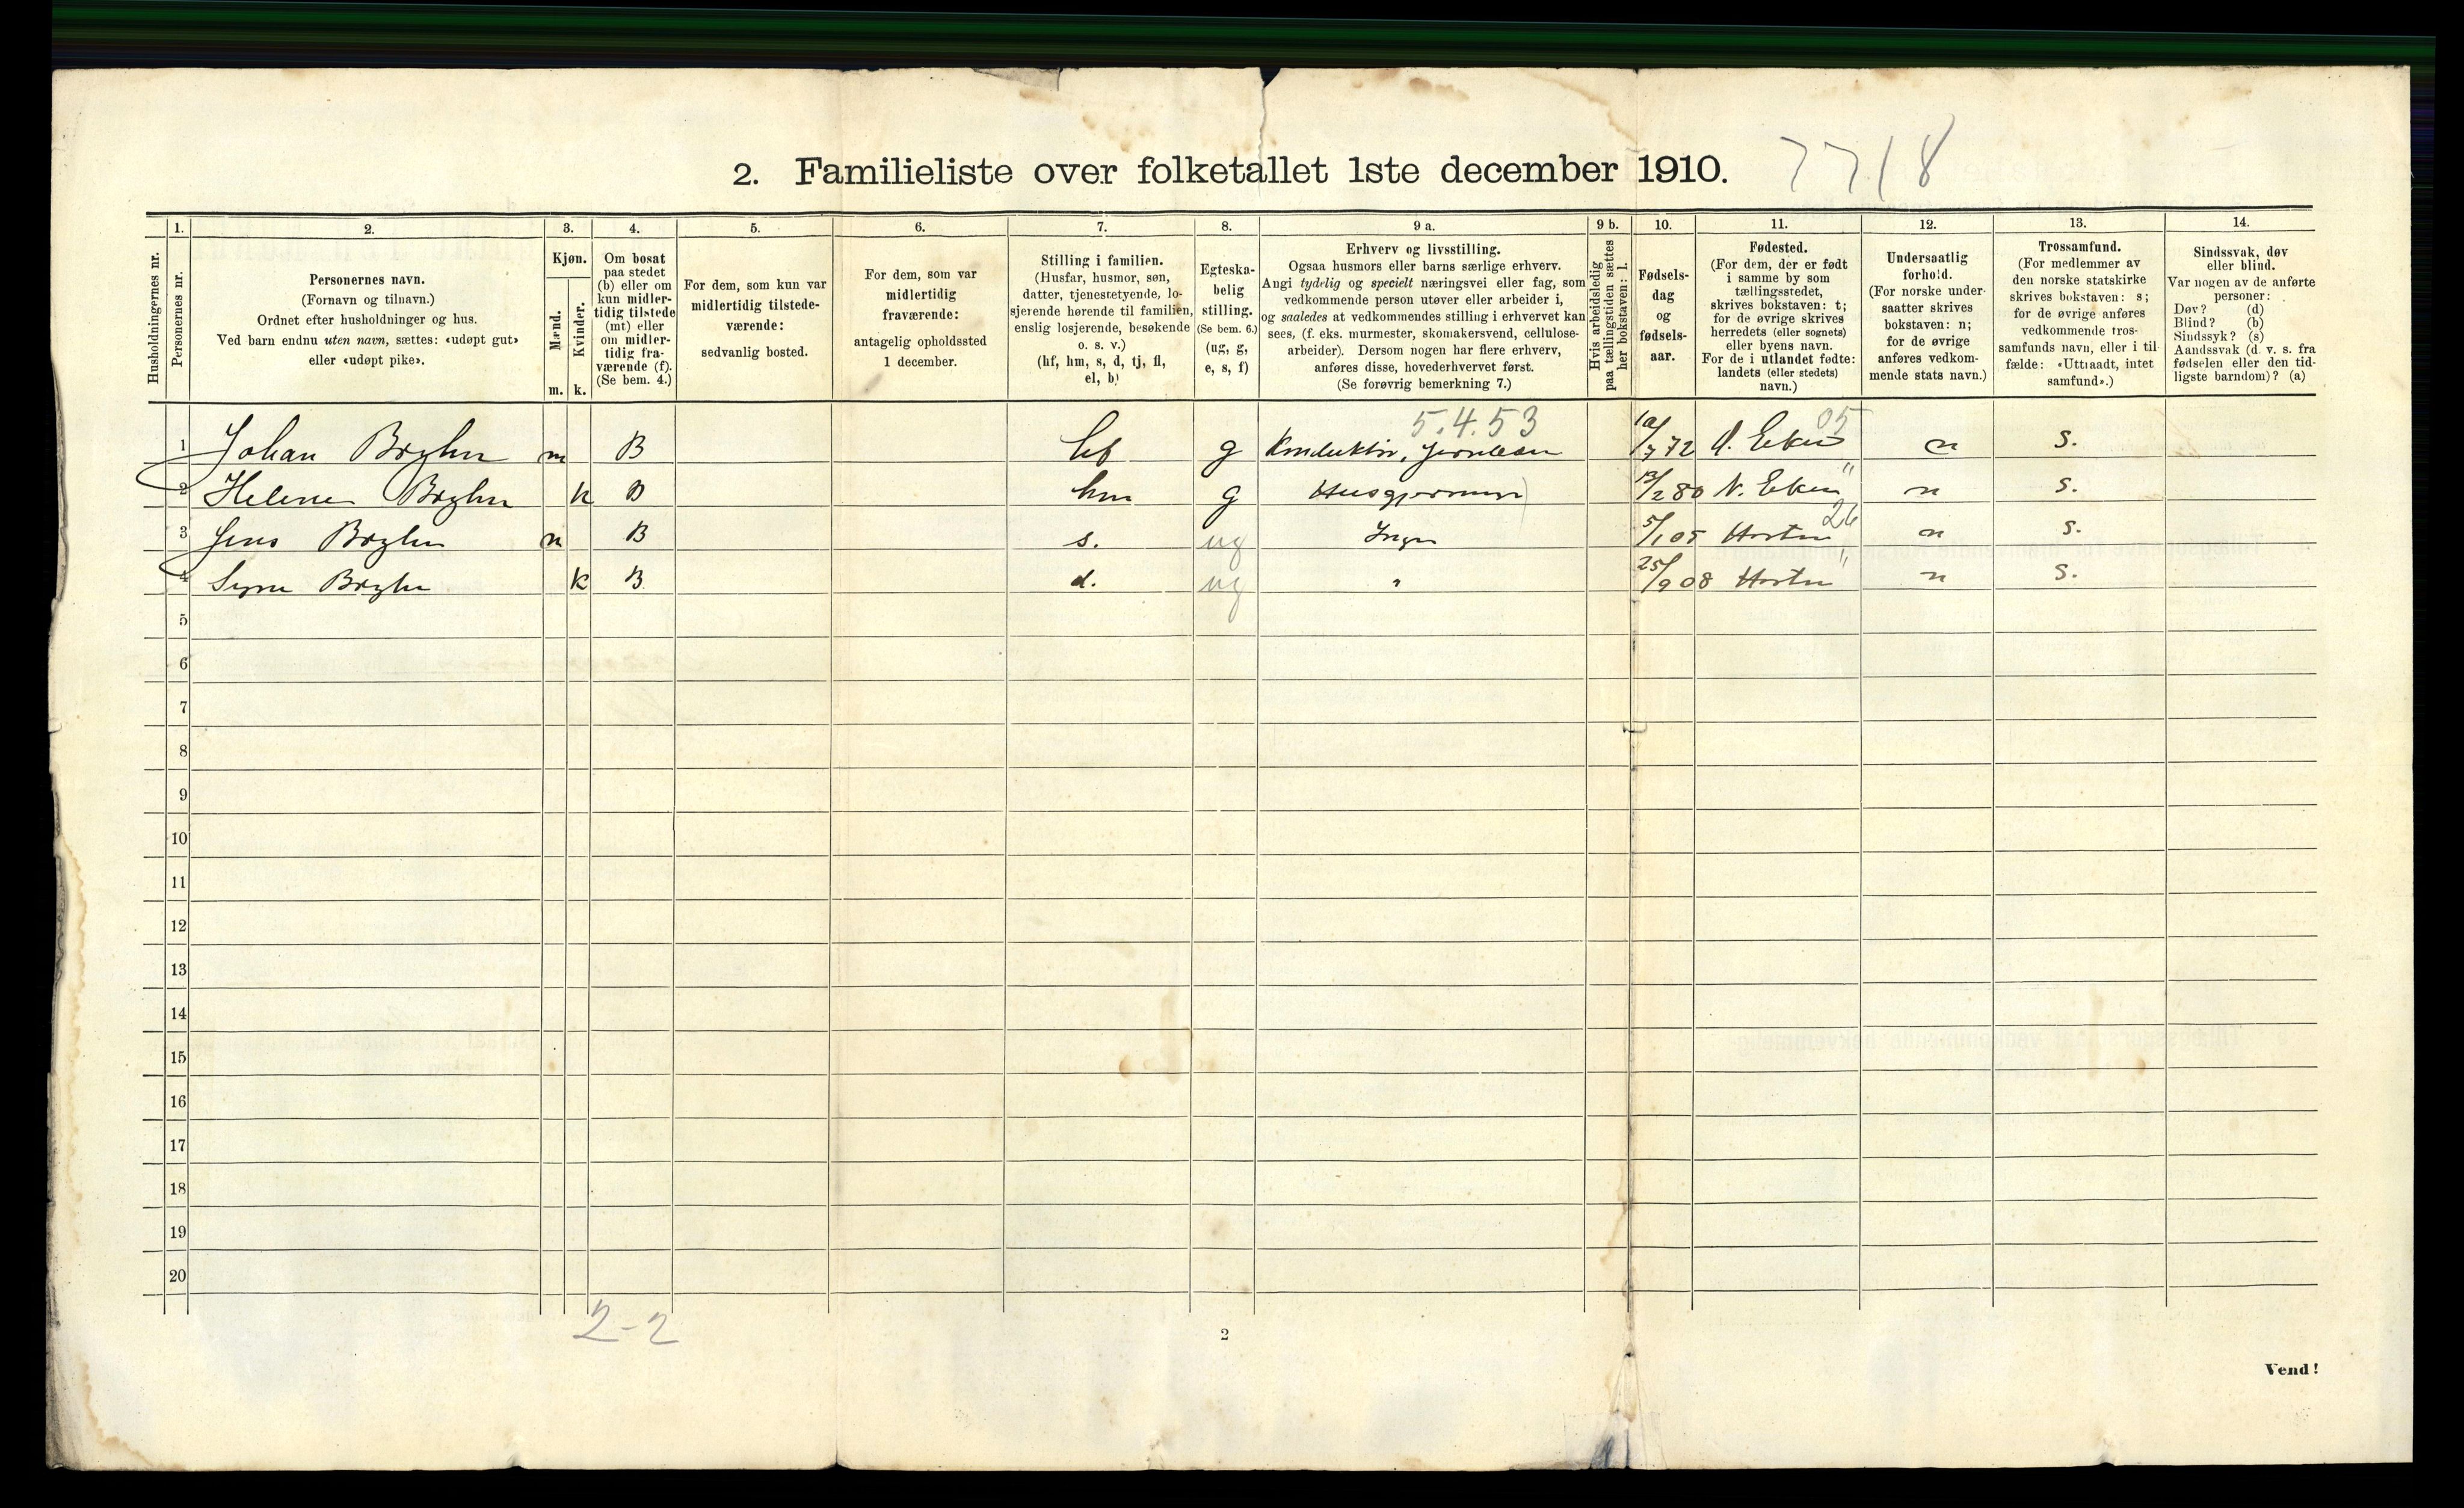 2. Familieliste over folketallet 1ste december 1910. 7718
Husholdningernes nr.
1.
Personernes nr.
2.
Personernes navn.
(Fornavn og tilnavn.)
Ordnet efter husholdninger og hus.
Ved barn endnu uten navn, sættes: «udøpt gut»
eller «udøpt pike».
3.
Kjøn.
Mænd.
m.
Kvinder.
k.
4.
Om bosat
paa stedet
(b) eller om
kun midler-
tidig tilstede
(mt) eller
om midler-
tidig fra-
værende (f).
(Se bem. 4.)
5.
For dem, som kun var
midlertidig tilstede-
værende:
sedvanlig bosted.
6.
For dem, som var
midlertidig
fraværende:
antagelig opholdssted
1 december.
7.
Stilling i familien.
(Husfar, husmor, søn,
datter, tjenestetyende, lo-
sjerende hørende til familien,
enslig losjerende, besøkende
o. s. v.)
(hf, hm, s, d, tj, fl,
el, b)
8.
Egteska-
belig
stilling.
(Se bem. 6.)
(ug, g,
e, s, f)
9 a.
Erhverv og livsstilling.
Ogsaa husmors eller barns særlige erhverv.
Angi tydelig og specielt næringsvei eller fag, som
vedkommende person utøver eller arbeider i,
og saaledes at vedkommendes stilling i erhvervet kan
sees, (f. eks. murmester, skomakersvend, cellulose-
arbeider). Dersom nogen har flere erhverv,
anføres disse, hovederhvervet først.
(Se forøvrig bemerkning 7.)
9 b.
Hvis arbeidsledig
paa tællingstiden sættes
her bokstaven: l.
10.
Fødsels-
dag
og
fødsels-
aar.
11.
Fødested.
(For dem, der er født
i samme by som
tællingsstedet,
skrives bokstaven: t;
for de øvrige skrives
herredets (eller sognets)
eller byens navn.
For de i utlandet fødte:
landets (eller stedets)
navn.)
12.
Undersaatlig
forhold.
(For norske under-
saatter skrives
bokstaven: n;
for de øvrige
anføres vedkom-
mende stats navn.)
13.
Trossamfund.
(For medlemmer av
den norske statskirke
skrives bokstaven: s;
for de øvrige anføres
vedkommende tros-
samfunds navn, eller i til-
fælde: «Uttraadt, intet
samfund».)
14.
Sindssvak, døv
eller blind.
Var nogen av de anførte
personer:
Døv? (d)
Blind? (b)
Sindssyk? (s)
Aandssvak (d. v. s. fra
fødselen eller den tid-
ligste barndom)? (a)
5.4.53 05
1 Johan m B hf g Konduktør, Jernbanen 10/7 72 Ø. Eker n s.
2 Helene k B hm g Husgjerning 13/2 80 N. Eker " n s.
26
3 Jens m B s. ug Ingen 5/1 05 Horten n s.
4 k B d. ug " 25/9 08 Horten " n s.
5
6
7
8
9
10
11
12
13
14
15
16
17
18
19
20
2-2
2
Vend!